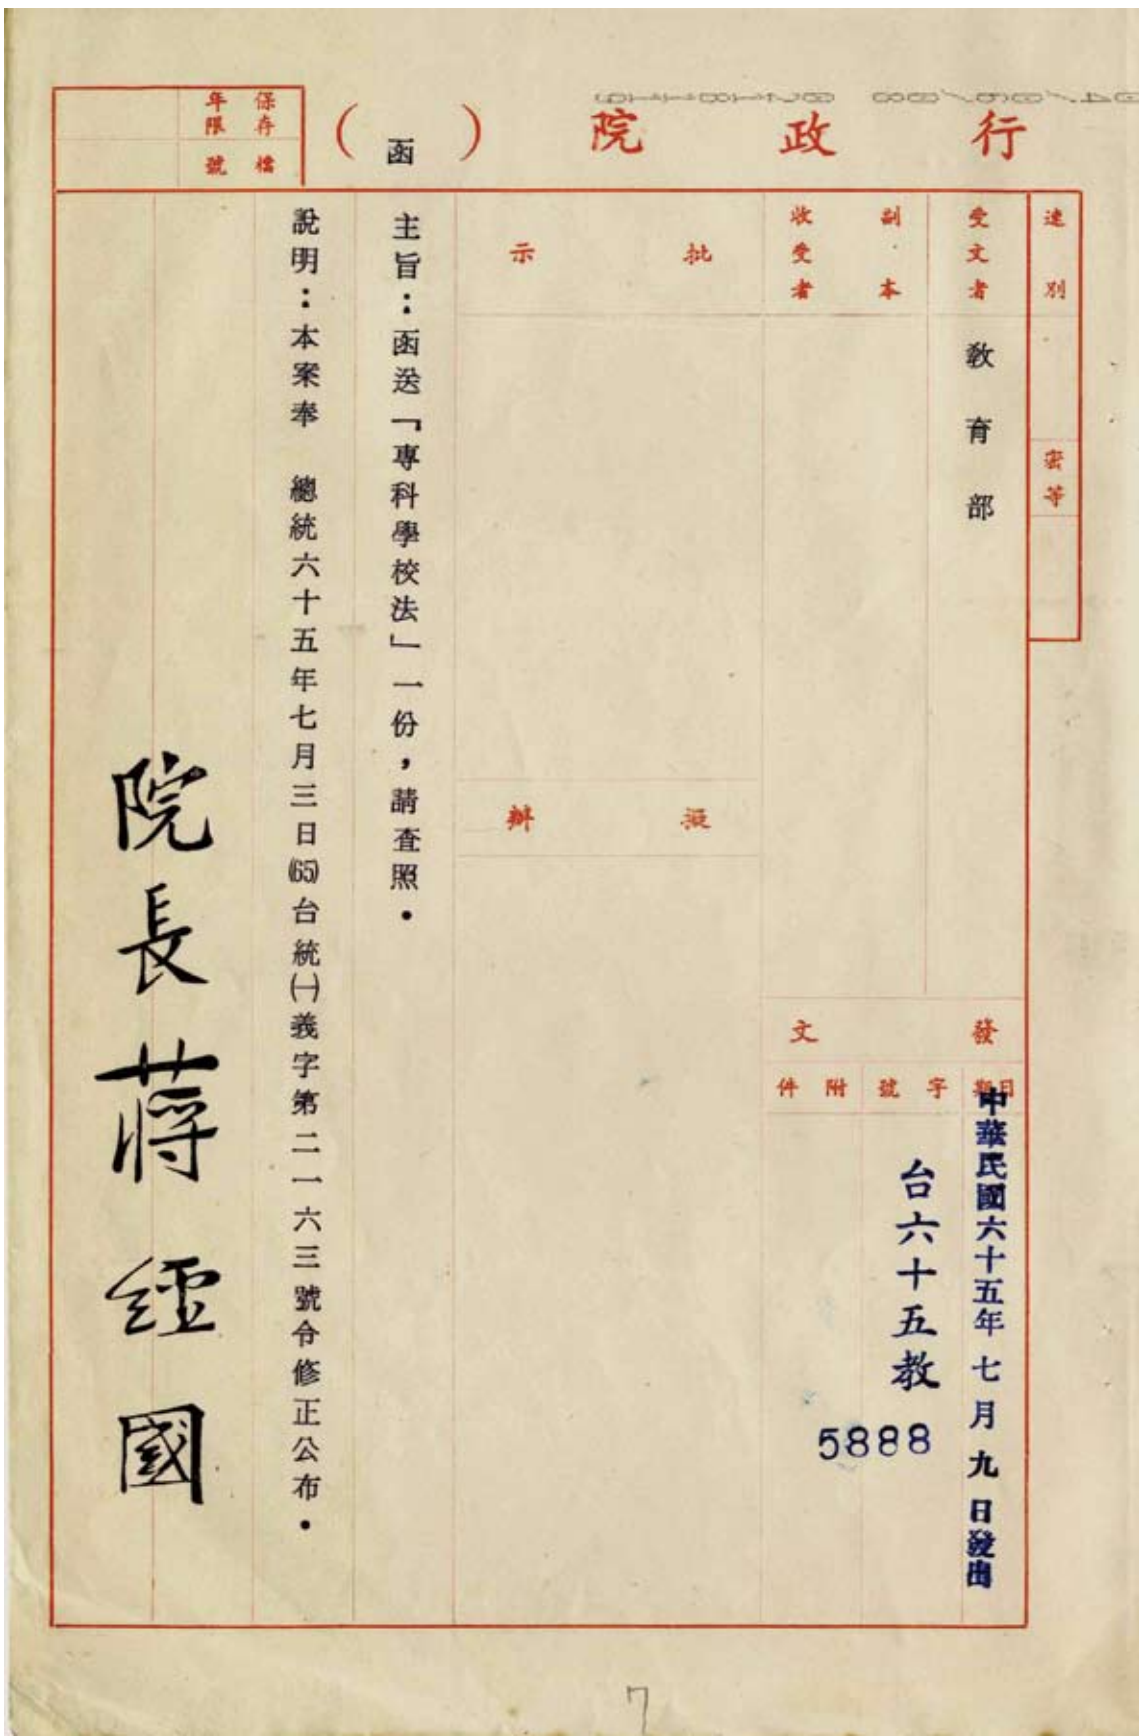 行政院
(函)
保存年限
檔號
速別
密等
受文者
教育部
副本收受者
批示
擬辦
發文
日期
中華民國六十五年七月九日發出
字號
台六十五教
5888
附件
主旨：函送「專科學校法」一份，請查照．
說明：本案奉　總統六十五年七月三日(65)台統(一)義字第二一六三號令修正公布．
院長蔣經國
7